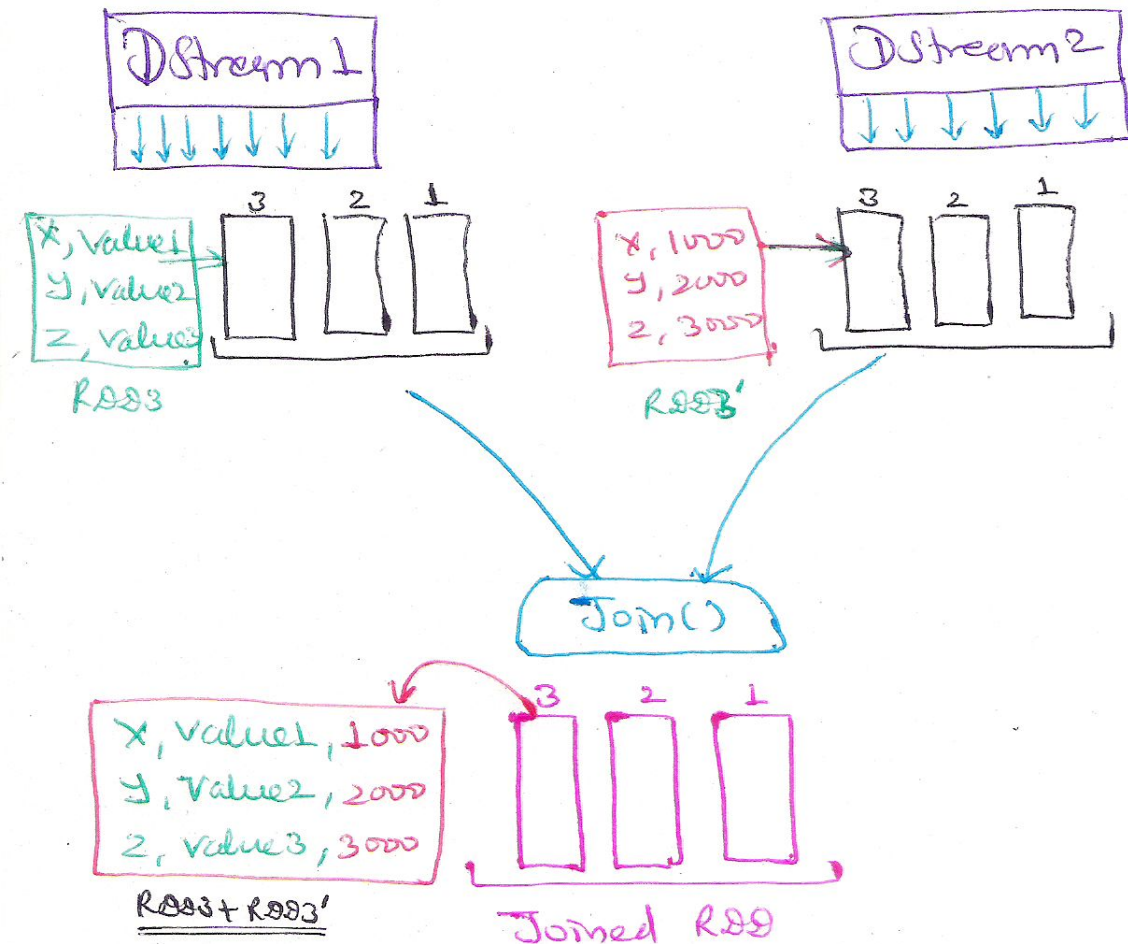 DStream1
DStream2
3 2 1
3 2 1
X, Value1
Y, Value2
Z, Value3
RDD3
X, 1000
Y, 2000
Z, 3000
RDD3'
Join()
3 2 1
X, Value1, 1000
Y, Value2, 2000
Z, Value3, 3000
RDD3+RDD3'
Joined RDD